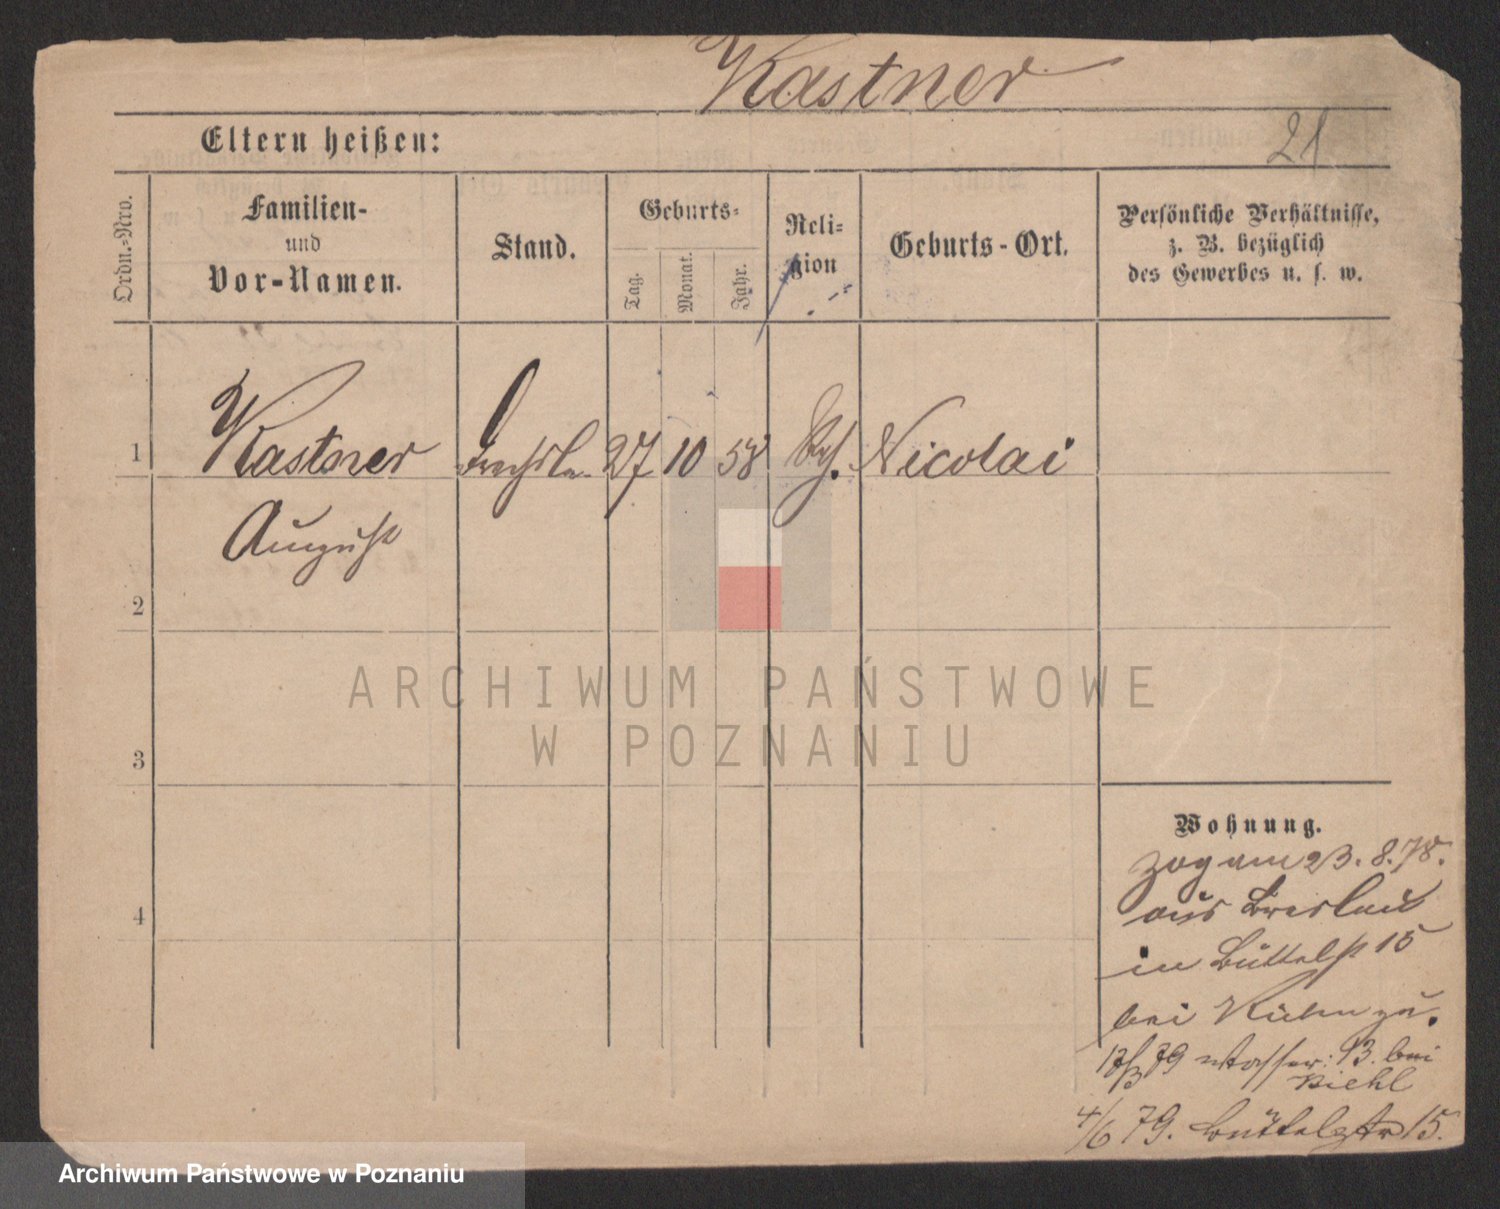 Kastner
Eltern heißen:
21
Ordn.-Nro.
Familien-
und
Vor-Namen.
Stand.
Geburts-
Tag.
Monat.
Jahr.
Reli-
gion
Geburts-Ort.
Persönliche Verhältnisse,
z. B. bezüglich
des Gewerbes u. s. w.
1
Kastner
27
10
58
Nicolai
August
2
ARCHIWUM PAŃSTWOWE
W POZNANIU
3
Wohnung.
zog am 23.8.78.
aus Breslau
4
in Büttelst 15
bei Kühn zu.
79 Wasser: 13. bei
4/6 79. Büttelstr 15.
Archiwum Państwowe w Poznaniu